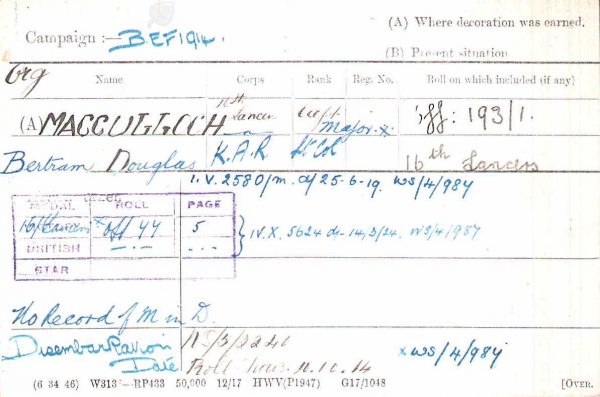 Campaign :— B.E.F 1914.
(A) Where decoration was earned.
(B) Present situation
Name Corps Rank Reg. No. Roll on which included (if any)
(A) MACCULLOCH 16th Lancers Capt. Off: 193/1.
Major x
Bertram Douglas K.A.R. Lt Col 16th Lancers
I.V. 2580/m. d/ 25-6-19. WS/4/984
MEDAL ROLL PAGE
16/Lancers x Off 44 5
BRITISH
STAR
IV.X. 5624 d- 14/3/24. WS/4/987
No Record of M in D.
Disembarkation
Date
x WS/4/984
(6 34 46) W313—RP433 50,000 12/17 HWV(P1947) G17/1048 [OVER.